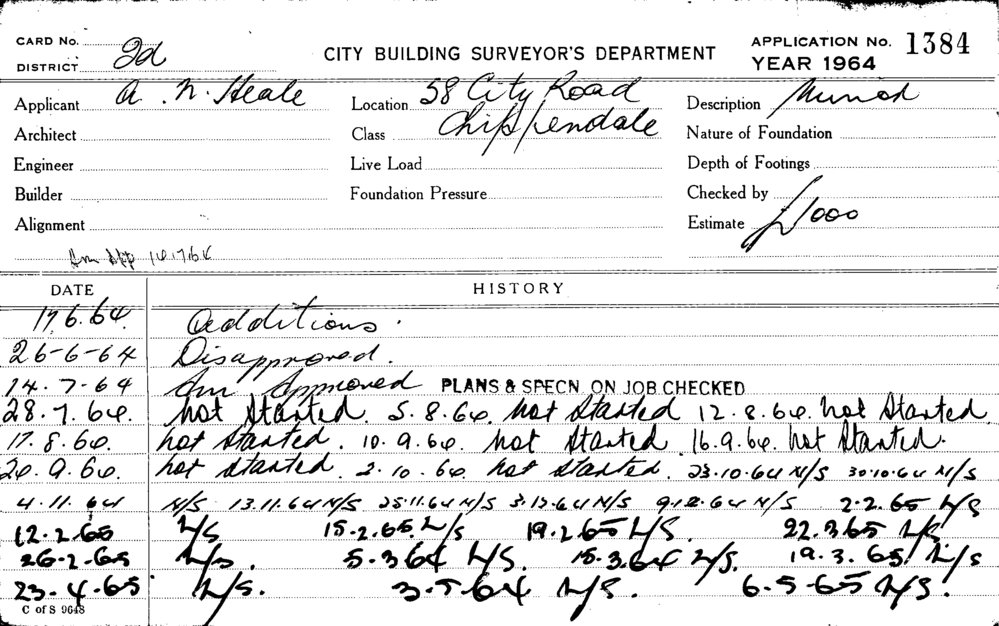 CARD No.
DISTRICT 2d
CITY BUILDING SURVEYOR'S DEPARTMENT
APPLICATION No. 1384
YEAR 1964
Applicant A. N. Heale
Location 58 City Road
Description
Architect
Class Chippendale
Nature of Foundation
Engineer
Live Load
Depth of Footings
Builder
Foundation Pressure
Checked by
Alignment
Estimate £1000
Am App 14.7.64
DATE HISTORY
17.6.64. Additions.
26-6-64 Disapproved.
14.7-64 Am Approved PLANS & SPECN. ON JOB CHECKED
28.7.64. not started. 5.8.64. not started 12.8.64. not started
17.8.64. not started. 10.9.64. not started. 16.9.64. not started.
24.9.64. not started. 2.10.64 not started. 23.10.64 N/S 30.10.64 N/S
4.11.64 N/S 13.11.64 N/S 25.11.64 N/S 3.12.64 N/S 9.12.64 N/S 2.2.65 N/S
12.2.65 N/S. 15.2.65. N/S 19.2.65 N/S. 22.3.65 N/S.
26.2.65 N/S. 5.3.64 N/S. 15.3.64 N/S. 19.3.65 N/S
23.4.65 N/S. 3.5.64 N/S. 6.5-65 N/S.
C of S 9648